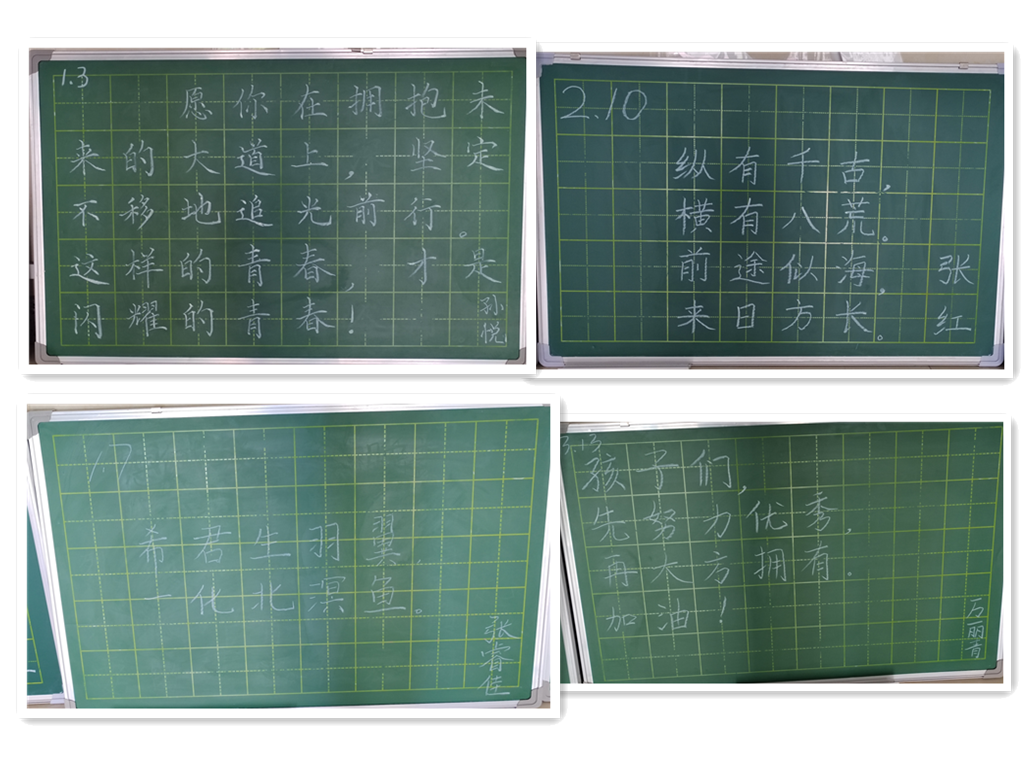 1.3
愿你在拥抱未
来的大道上，坚定
不移地追光前行。
这样的青春，才是
闪耀的青春！
孙悦
2.10
纵有千古，
横有八荒。
前途似海，
来日方长。
张红
1.7
希君生羽翼
一化北溟鱼。
张睿佳
3.13
孩子们，
先努力优秀，
再大方拥有。
加油！